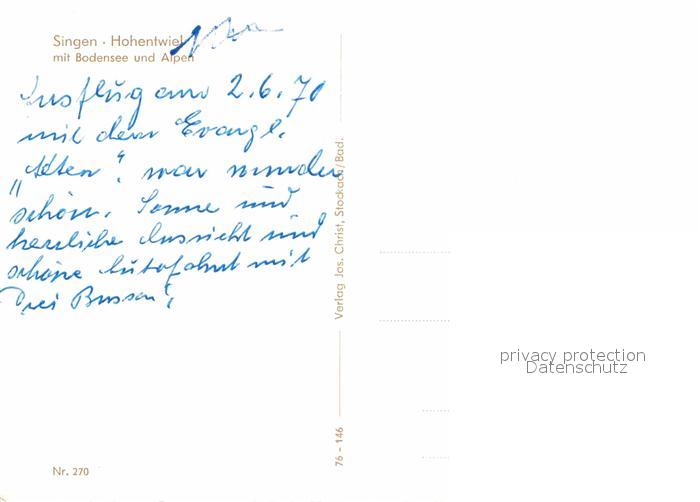 Singen · Hohentwiel
mit Bodensee und Alpen
Ausflug am 2.6.70
mit dem Evangl.
„Alten“. war wunder
schön. Sonne und
herrliche Aussicht und
schöne Autofahrt mit
Drei Bussen!
Verlag Jos. Christ, Stockach/Bad.
76 - 146
Nr. 270
privacy protection
Datenschutz